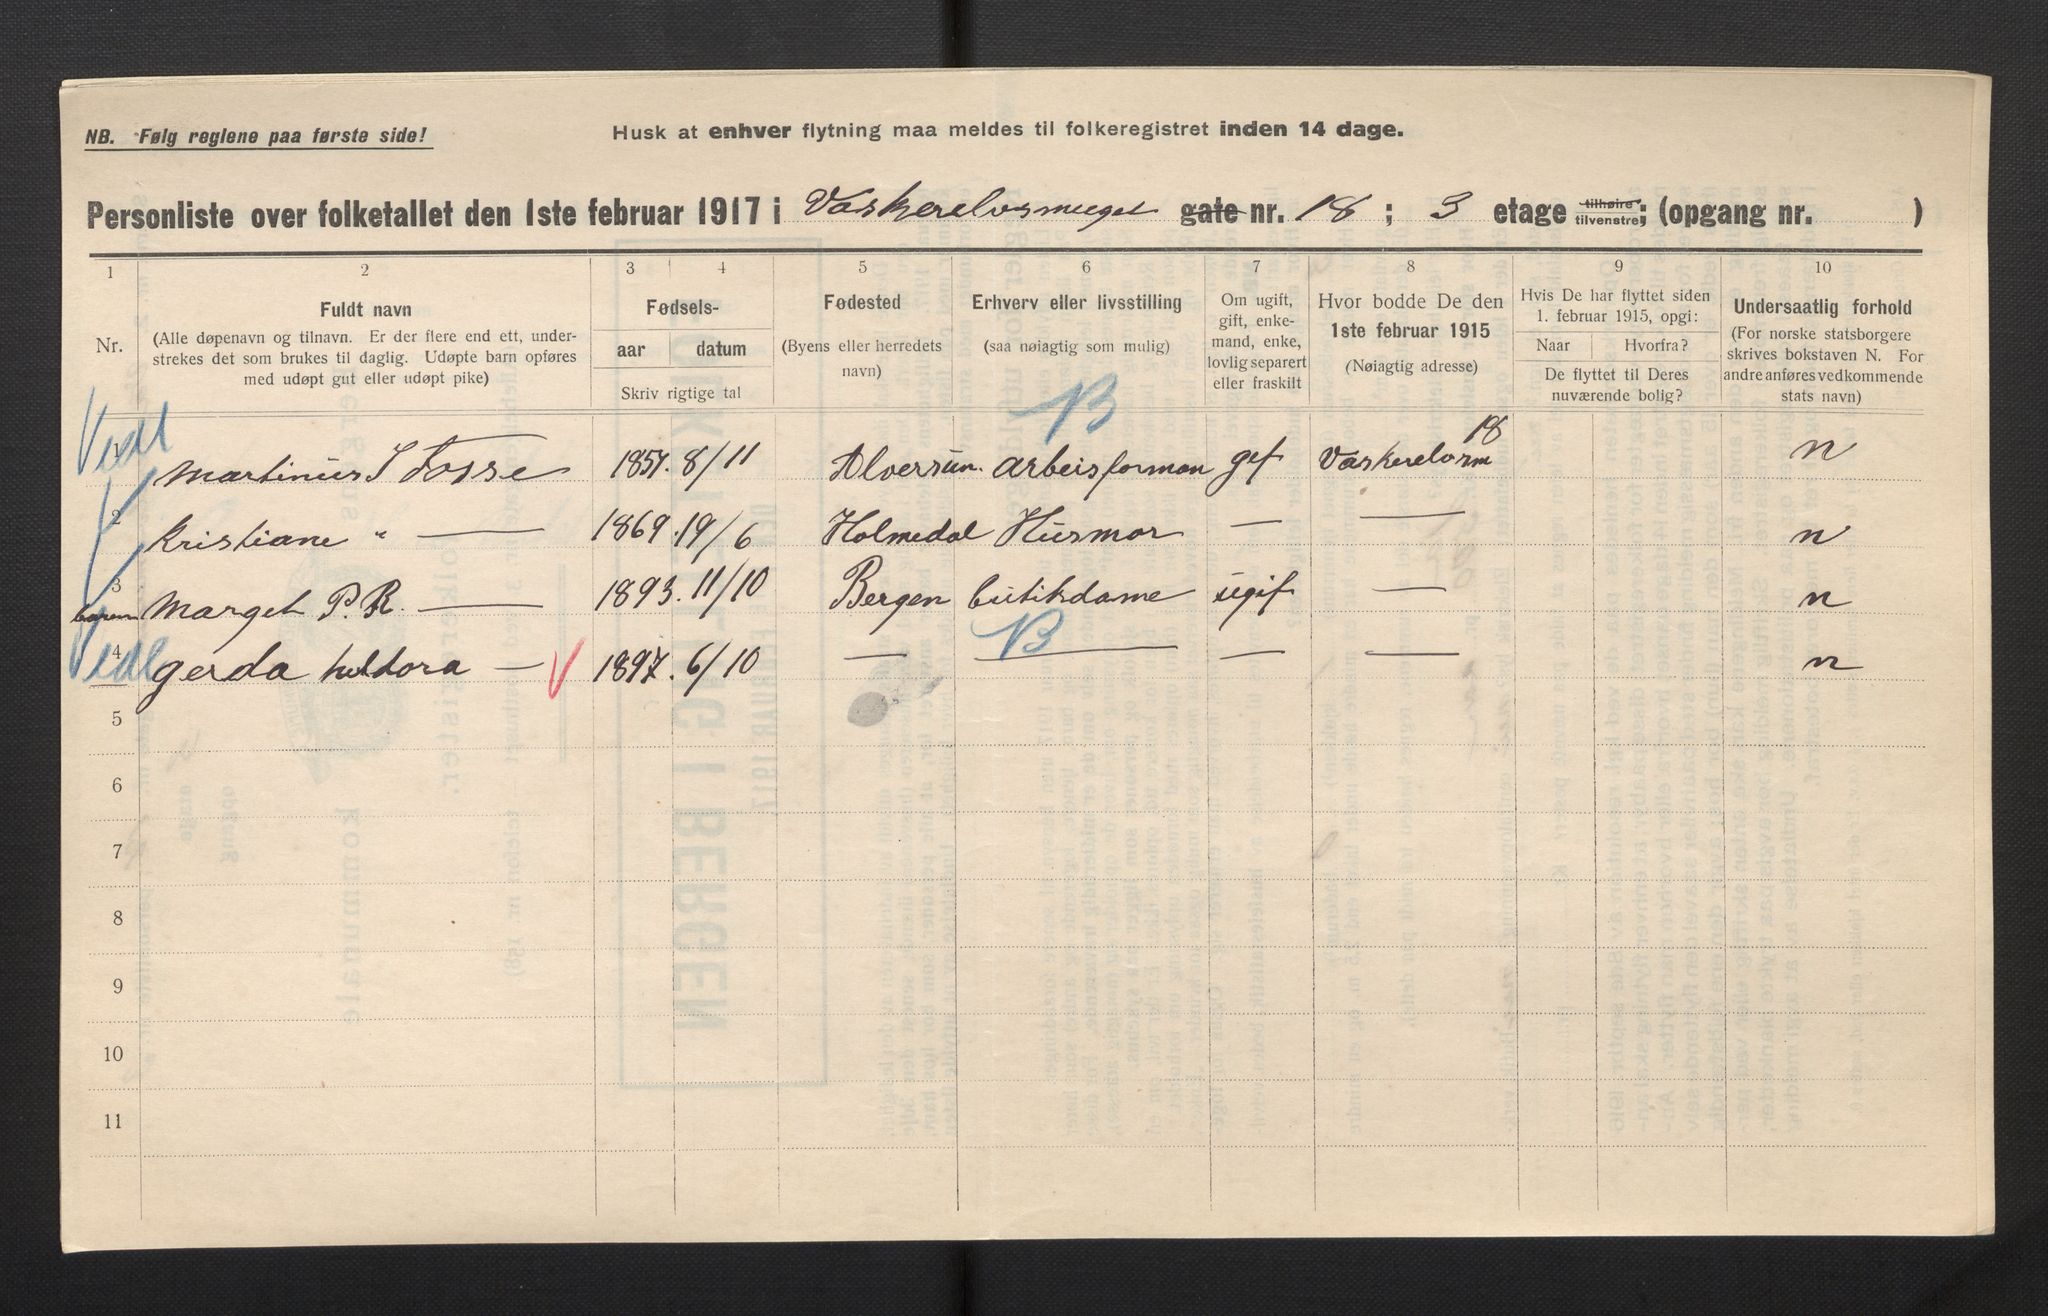 NB. Følg reglene paa første side!
Husk at enhver flytning maa meldes til folkeregistret inden 14 dage.
Personliste over folketallet den 1ste februar 1917 i Vaskerelvsmuget gate nr. 18 ; 3 etage tilhøire tilvenstre; (opgang nr. )
1 2 3 4 5 6 7 8 9 10
Nr.
Fuldt navn
(Alle døpenavn og tilnavn. Er der flere end ett, under-
strekes det som brukes til daglig. Udøpte barn opføres
med udøpt gut eller udøpt pike)
Fødsels-
aar datum
Skriv rigtige tal
Fødested
(Byens eller herredets
navn)
Erhverv eller livsstilling
(saa nøiagtig som mulig)
Om ugift,
gift, enke-
mand, enke,
lovlig separert
eller fraskilt
Hvor bodde De den
1ste februar 1915
(Nøiagtig adresse)
Hvis De har flyttet siden
1. februar 1915, opgi:
Naar Hvorfra?
De flyttet til Deres
nuværende bolig?
Undersaatlig forhold
(For norske statsborgere
skrives bokstaven N. For
andre anføres vedkommende
stats navn)
B
Vedl
18
Martinius J Fosse 1857. 8/11 Alversun. arbeisforman gef Vaskerelvsm n
2 Kristiane " — 1869. 19/6 Holmedal Husmor — — n
3 Marget P. R. — 1893. 11/10 Bergen butikdame ugif — n
B
Vedl
4 gerda heldora — V 1897. 6/10 — — — — n
5
6
7
8
9
10
11